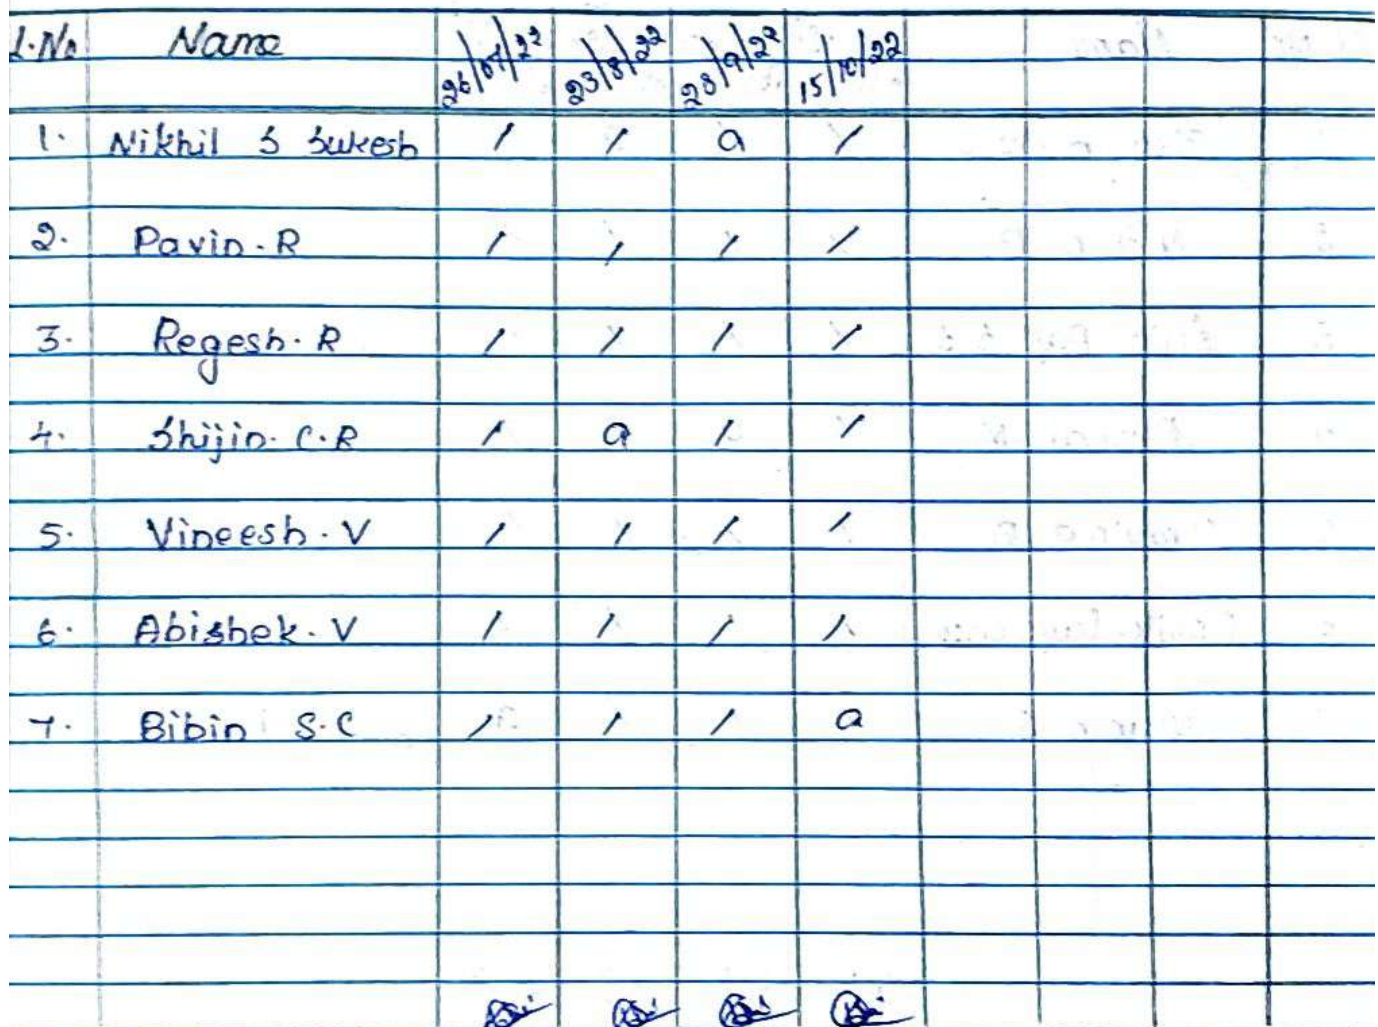 L.No Name 26/07/22 23/8/22 28/9/22 15/10/22
1. Nikhil S Sukesh / / a /
2. Pavin. R / / / /
3. Regesh. R / / / /
4. Shijin. C. R / a / /
5. Vineesh. V / / / /
6. Abishek. V / / / /
7. Bibin S. C / / / a